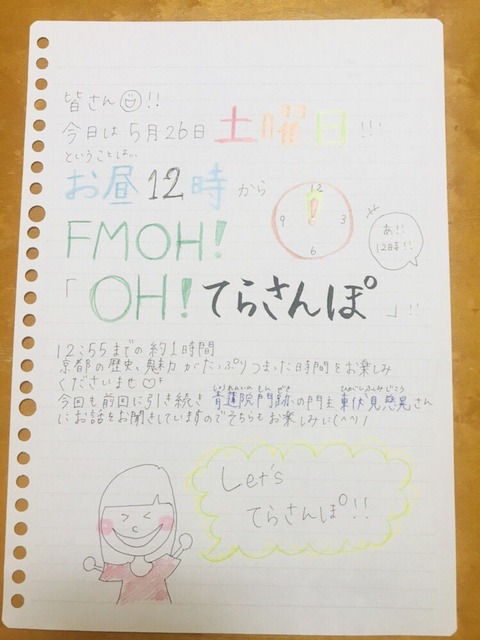 皆さん!!
今日は5月26日土曜日!!!
ということは…
お昼12時から
12
9 3
6
あ!!
12時!!
FMOH!
「OH!てらさんぽ」!!
12:55までの約1時間
京都の歴史、魅力がたっぷりつまった時間をお楽しみ
くださいませ♡
しょうれんいん もん ぜき ひがしふしみじこう
今回も前回に引き続き青蓮院門跡の門主東伏見慈晃さん
にお話をお聞きしていますのでそちらもお楽しみに(^^)/
Let's
てらさんぽ!!